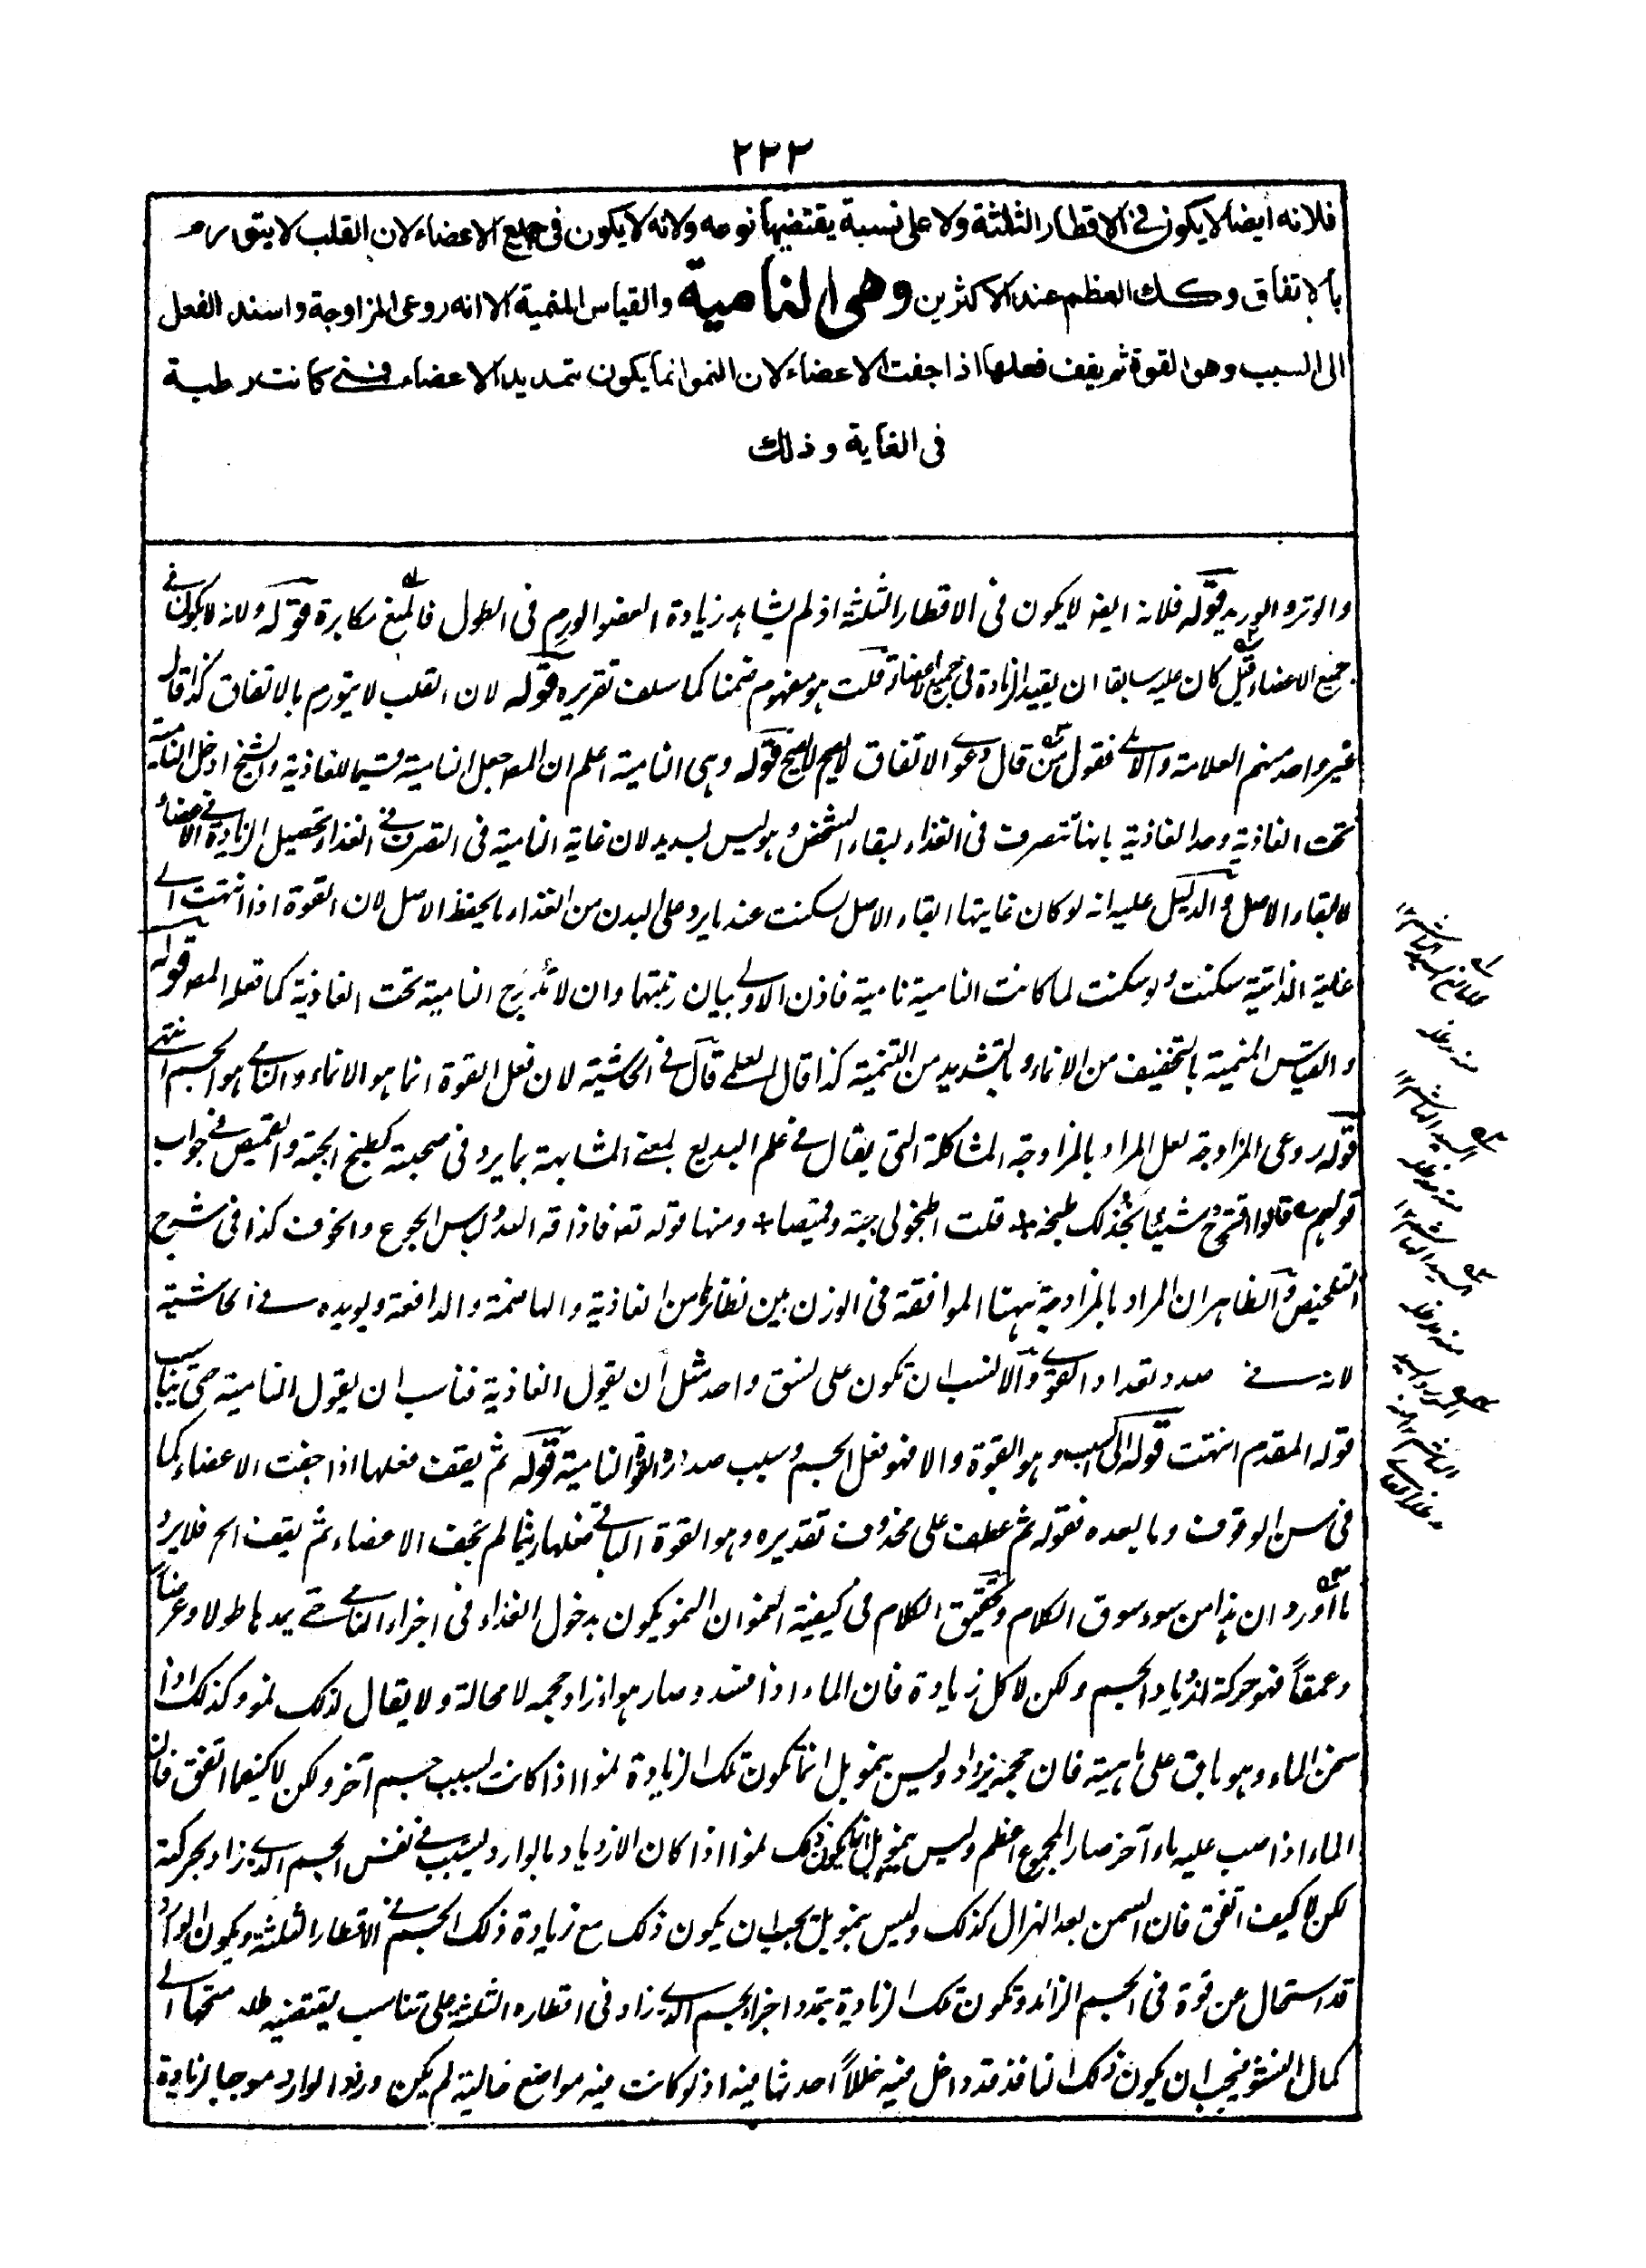 ٢٣٣
فلانه ايضا لا يكون فى الاقطار الثلثة ولا على نسبة يقتضيها نوعه ولانه لا يكون فى جميع الاعضاء لان القلب لا يتورم
بالاتفاق وكذلك العظم عند الاكثرين وهى النامية والقياس المنمية الا انه روعى المزاوجة واسند الفعل
الى السبب وهى القوة ثم يقف فعلها اذا جفت الاعضاء لان النمو انما يكون بتمديد الاعضاء فمتى كانت رطبة
فى الغاية وذلك
والوتر والوريد قوله فلانه ايضا لا يكون فى الاقطار الثلثة اذ لم يشاهد زيادة العضو الورم فى الطول فالمنع مكابرة قوله ولانه لا يكون فى
جميع الاعضاء قيل كان عليه سابقا ان يقيد الزيادة فى جميع الاعضاء قلت هو مفهوم ضمنا كما سلف تقريره قوله لان القلب لا يتورم بالاتفاق كذا قال
غير واحد منهم العلامة والآملى فقول من قال دعوى الاتفاق لا يصح قوله وهى النامية اعلم ان المص جعل النامية قسيما للغاذية والشيخ ادخل النامية
تحت الغاذية وحد الغاذية بانها تتصرف فى الغذاء لبقاء الشخص وهو ليس بسديد لان غاية النامية فى التصرف فى الغذاء تحصيل الزيادة فى الاعضاء
لا لبقاء الاصل والدليل عليه انه لو كان غايتها ابقاء الاصل لسكنت عند ما يرد على البدن من الغذاء ما يحفظ الاصل لان القوة اذا انتهت الى
غايتها الذاتية سكنت ولو سكنت لما كانت النامية نامية فاذن الاولى بيان رتبتها وان لا تدرج النامية تحت الغاذية كما فعله المص قوله
والقياس المنمية بالتخفيف من الانماء وبالتشديد من التنمية كذا قال المعلى قال فى الحاشية لان فعل القوة انما هو الانماء والنامى هو الجسم انتهى
قوله روعى المزاوجة لعل المراد بالمزاوجة المشاكلة التى يقال فى علم البديع بمعنى المشابهة بما يرد فى صحبته كطبخ الجبة والقميص فى جواب
قولهم قالوا اقترح شيئا نجد لك طبخه * قلت اطبخوا لى جبة وقميصا * ومنها قوله تعالى فاذاقه الله لباس الجوع والخوف كذا فى شرح
التلخيص والظاهر ان المراد بالمزاوجة ههنا الموافقة فى الوزن بين نظائرها من الغاذية والهاضمة والدافعة ويويده ما فى الحاشية
لانه فى صدد تعداد القوى والانسب ان تكون على نسق واحد مثل ان يقول الغاذية فناسب ان يقول النامية حتى يناسب
قوله المقدم انتهت قوله الى السبب وهو القوة والا فهو فعل الجسم وسبب صدوره القوة النامية قوله ثم يقف فعلها اذا جفت الاعضاء كما
فى سن الوقوف وما بعده فقوله ثم عطف على محذوف تقديره وهو القوة الباقى فعلها ريثما لم تجف الاعضاء ثم يقف الخ فلا يرد
ما اورد ان هذا من سوء سوق الكلام وتحقيق الكلام فى كيفية النمو ان النمو يكون بدخول الغذاء فى اجزاء النامى حتى يمدها طولا وعرضا
وعمقا فهو حركة ازدياد الجسم ولكن لا كل زيادة فان الماء اذا فسد وصار هواء زاد حجمه لا محالة ولا يقال لذلك نمو وكذلك اذا
سخن الماء وهو باق على ماهيته فان حجمه يزداد وليس بنمو بل انما تكون تلك الزيادة نموا اذا كانت بسبب جسم آخر ولكن لا كيفما اتفق فان
الماء اذا صب عليه ماء آخر صار المجموع اعظم وليس بنمو بل انما يكون ذلك نموا اذا كان الازدياد بالوارد يتسبب فى نفس الجسم الذى زاد بحركته
لكن لا كيف اتفق فان السمن بعد الهزال كذلك وليس بنمو بل يجب ان يكون ذلك مع زيادة ذلك الجسم فى الاقطار الثلثة ويكون الوارد
قد استحال عن قوة فى الجسم الزائد وتكون تلك الزيادة بتمدد اجزاء الجسم الذى زاد فى اقطاره الثلثة على تناسب يقتضيه طبعه منتهيا الى
كمال النشو فيجب ان يكون ذلك النافذ قد داخل فيه خللا احدثها فيه اذ لو كانت فيه مواضع خالية لم يكن ورود الوارد موجبا لزيادة